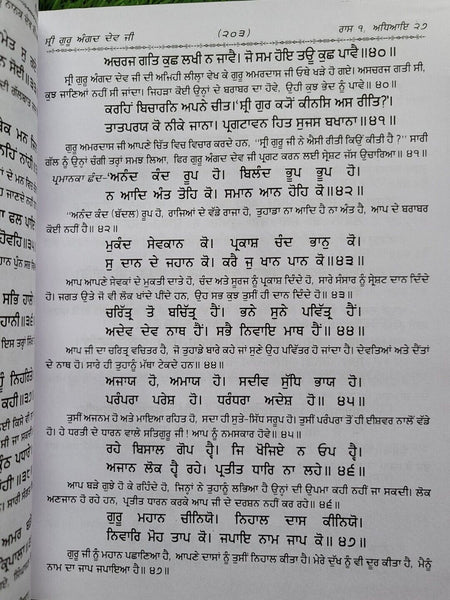 ਸ੍ਰੀ ਗੁਰੂ ਅੰਗਦ ਦੇਵ ਜੀ (੨੦੩) ਰਾਸ ੧. ਅਧਿਆਇ ੨੭
ਅਚਰਜ ਗਤਿ ਕੁਛ ਲਖੀ ਨ ਜਾਵੈ। ਜੋ ਸਮ ਹੋਇ ਤਊ ਕੁਛ ਪਾਵੈ॥੪੦॥
ਸ੍ਰੀ ਗੁਰੂ ਅੰਗਦ ਦੇਵ ਜੀ ਦੀ ਅਜਿਹੀ ਲੀਲ੍ਹਾ ਵੇਖ ਕੇ ਗੁਰੂ ਅਮਰਦਾਸ ਜੀ ਓਥੇ ਖੜੇ ਹੋ ਗਏ। ਅਸਚਰਜ ਗਤੀ ਸੀ,
ਕੁਝ ਜਾਣਿਆਂ ਨਹੀਂ ਸੀ ਜਾਂਦਾ। ਜਿਹੜਾ ਕੋਈ ਉਨ੍ਹਾਂ ਦੇ ਬਰਾਬਰ ਦਾ ਹੋਵੇ, ਉਹੀ ਕੁਝ ਭੇਦ ਨੂੰ ਪਾਵੇ॥੪੦॥
ਕਰਹਿਂ ਬਿਚਾਰਨਿ ਅਪਨੇ ਚੀਤ। 'ਸ੍ਰੀ ਗੁਰ ਕਯੋਂ ਕੀਨਸਿ ਅਸ ਰੀਤਿ?'।
ਤਾਤਪਰਯ ਕੋ ਨੀਕੇ ਜਾਨਾ। ਪ੍ਰਗਟਾਵਨ ਹਿਤ ਸੁਜਸ ਬਖਾਨਾ॥੪੧॥
ਗੁਰੂ ਅਮਰਦਾਸ ਜੀ ਆਪਣੇ ਚਿੱਤ ਵਿਚ ਵਿਚਾਰ ਕਰਦੇ ਹਨ, ''ਸ੍ਰੀ ਗੁਰੂ ਜੀ ਨੇ ਐਸੀ ਰੀਤੀ ਕਿਉਂ ਕੀਤੀ ਹੈ?'' ਸਾਰੀ
ਗੱਲ ਨੂੰ ਉਨ੍ਹਾਂ ਚੰਗੀ ਤਰ੍ਹਾਂ ਸਮਝ ਲਿਆ, ਫਿਰ ਗੁਰੂ ਅੰਗਦ ਦੇਵ ਜੀ ਪ੍ਰਗਟ ਕਰਨ ਲਈ ਸ੍ਰੇਸ਼ਟ ਜੱਸ ਉਚਾਰਿਆ॥੪੧॥
ਪ੍ਰਮਾਨਕਾ ਛੰਦ–'ਅਨੰਦ ਕੰਦ ਰੂਪ ਹੋ। ਬਿਲੰਦ ਭੂਪ ਭੂਪ ਹੋ।
ਨ ਆਦਿ ਅੰਤ ਤੋਹਿ ਕੋ। ਸਮਾਨ ਆਨ ਹੋਹਿ ਕੋ॥੪੨॥
''ਅਨੰਦ ਕੰਦ (ਬੱਦਲ) ਰੂਪ ਹੋ, ਰਾਜਿਆਂ ਦੇ ਵੱਡੇ ਰਾਜਾ ਹੋ, ਤੁਹਾਡਾ ਨਾ ਆਦਿ ਹੈ ਨਾ ਅੰਤ ਹੈ, ਆਪ ਦੇ ਬਰਾਬਰ
ਕੋਈ ਨਹੀਂ ਹੈ॥੪੨॥
ਮੁਕੰਦ ਸੇਵਕਾਨ ਕੋ। ਪ੍ਰਕਾਸ਼ ਚੰਦ ਭਾਨੁ ਕੋ।
ਸੁ ਦਾਨ ਦੇ ਜਹਾਨ ਕੋ। ਕਰੈ ਜੁ ਖਾਨ ਪਾਨ ਕੋ॥੪੩॥
ਆਪ ਆਪਣੇ ਸੇਵਕਾਂ ਦੇ ਮੁਕਤੀ ਦਾਤੇ ਹੋ, ਚੰਦ ਅਤੇ ਸੂਰਜ ਨੂੰ ਪ੍ਰਕਾਸ਼ ਦਿੰਦੇ ਹੋ, ਸਾਰੇ ਸੰਸਾਰ ਨੂੰ ਸ੍ਰੇਸ਼ਟ ਦਾਨ ਦਿੰਦੇ
ਹੋ। ਜਗਤ ਉਤੇ ਜੋ ਵੀ ਲੋਕ ਖਾਂਦੇ ਪੀਂਦੇ ਹਨ, ਉਹ ਸਭ ਕੁਝ ਤੁਸੀਂ ਹੀ ਦਾਨ ਦਿੰਦੇ ਹੋ॥੪੩॥
ਚਰਿੱਤ੍ਰ ਤੋ ਬਚਿੱਤ੍ਰ ਹੈਂ। ਭਨੇ ਸੁਨੇ ਪਵਿੱਤ੍ਰ ਹੈਂ।
ਅਦੇਵ ਦੇਵ ਨਾਥ ਹੈਂ। ਸਭੈ ਨਿਵਾਇ ਮਾਥ ਹੈਂ॥੪੪॥
ਆਪ ਜੀ ਦਾ ਚਰਿਤ੍ਰ ਵਚਿਤਰ ਹੈ, ਜੋ ਤੁਹਾਡੇ ਬਾਰੇ ਕਹੇ ਜਾਂ ਸੁਣੇ ਉਹ ਪਵਿੱਤਰ ਹੋ ਜਾਂਦਾ ਹੈ। ਦੇਵਤਿਆਂ ਅਤੇ ਦੈਂਤਾਂ
ਦੇ ਨਾਥ ਹੋ। ਸਾਰੇ ਹੀ ਤੁਹਾਨੂੰ ਮੱਥਾ ਟੇਕਦੇ ਹਨ॥੪੪॥
ਅਜਾਯ ਹੋ, ਅਮਾਯ ਹੋ। ਸਦੀਵ ਸੁੱਧਿ ਭਾਯ ਹੋ।
ਪਰੰਪਰਾ ਪਰੇਸ਼ ਹੋ। ਧਰੰਧਰਾ ਅਦੇਸ਼ ਹੋ॥੪੫॥
ਤੁਸੀਂ ਅਜਨਮ ਹੋ ਅਤੇ ਮਾਇਆ ਰਹਿਤ ਹੋ, ਸਦਾ ਹੀ ਸੁਤੇ-ਸਿੱਧ ਸਰੂਪ ਹੋ। ਤੁਸੀਂ ਪਰੰਪਰਾ ਤੋਂ ਹੀ ਈਸ਼ਵਰ ਨਾਲੋਂ ਵੱਡੇ
ਹੋ। ਹੇ ਧਰਤੀ ਦੇ ਧਾਰਨ ਵਾਲੇ ਸਤਿਗੁਰੂ ਜੀ! ਆਪ ਨੂੰ ਨਮਸਕਾਰ ਹੋਵੇ॥੪੫॥
ਰਹੇ ਬਿਸਾਲ ਗੋਪ ਹ੍ਵੈ। ਜਿ ਖੋਜਿਏ ਨ ਓਪ ਹ੍ਵੈ।
ਅਜਾਨ ਲੋਕ ਹ੍ਵੈ ਰਹੇ। ਪ੍ਰਤੀਤ ਧਾਰਿ ਨਾ ਲਹੇ॥੪੬॥
ਆਪ ਬੜੇ ਗੁਝੇ ਹੋ ਕੇ ਰਹਿੰਦੇ ਹੋ, ਜਿਨ੍ਹਾਂ ਨੇ ਤੁਹਾਨੂੰ ਲਭਿਆ ਹੈ ਉਨ੍ਹਾਂ ਦੀ ਉਪਮਾ ਕਹੀ ਨਹੀਂ ਜਾ ਸਕਦੀ। ਲੋਕ
ਅਣਜਾਨ ਹੋ ਰਹੇ ਹਨ, ਪ੍ਰਤੀਤ ਧਾਰਨ ਕਰਕੇ ਆਪ ਜੀ ਦੇ ਦਰਸ਼ਨ ਨਹੀਂ ਕਰ ਰਹੇ॥੪੬॥
ਗੁਰੂ ਮਹਾਨ ਚੀਨਿਯੋ। ਨਿਹਾਲ ਦਾਸ ਕੀਨਿਯੋ।
ਨਿਵਾਰਿ ਮੋਹ ਤਾਪ ਕੋ। ਜਪਾਇ ਨਾਮ ਜਾਪ ਕੋ॥੪੭॥
ਗੁਰੂ ਜੀ ਨੂੰ ਮਹਾਨ ਪਛਾਣਿਆ ਹੈ, ਆਪਣੇ ਦਾਸਾਂ ਨੂੰ ਤੁਸੀਂ ਨਿਹਾਲ ਕੀਤਾ ਹੈ। ਮੇਰੇ ਦੁੱਖ ਨੂੰ ਵੀ ਦੂਰ ਕੀਤਾ ਹੈ, ਮੈਨੂੰ
ਨਾਮ ਦਾ ਜਾਪ ਜਪਾਇਆ ਹੈ॥੪੭॥